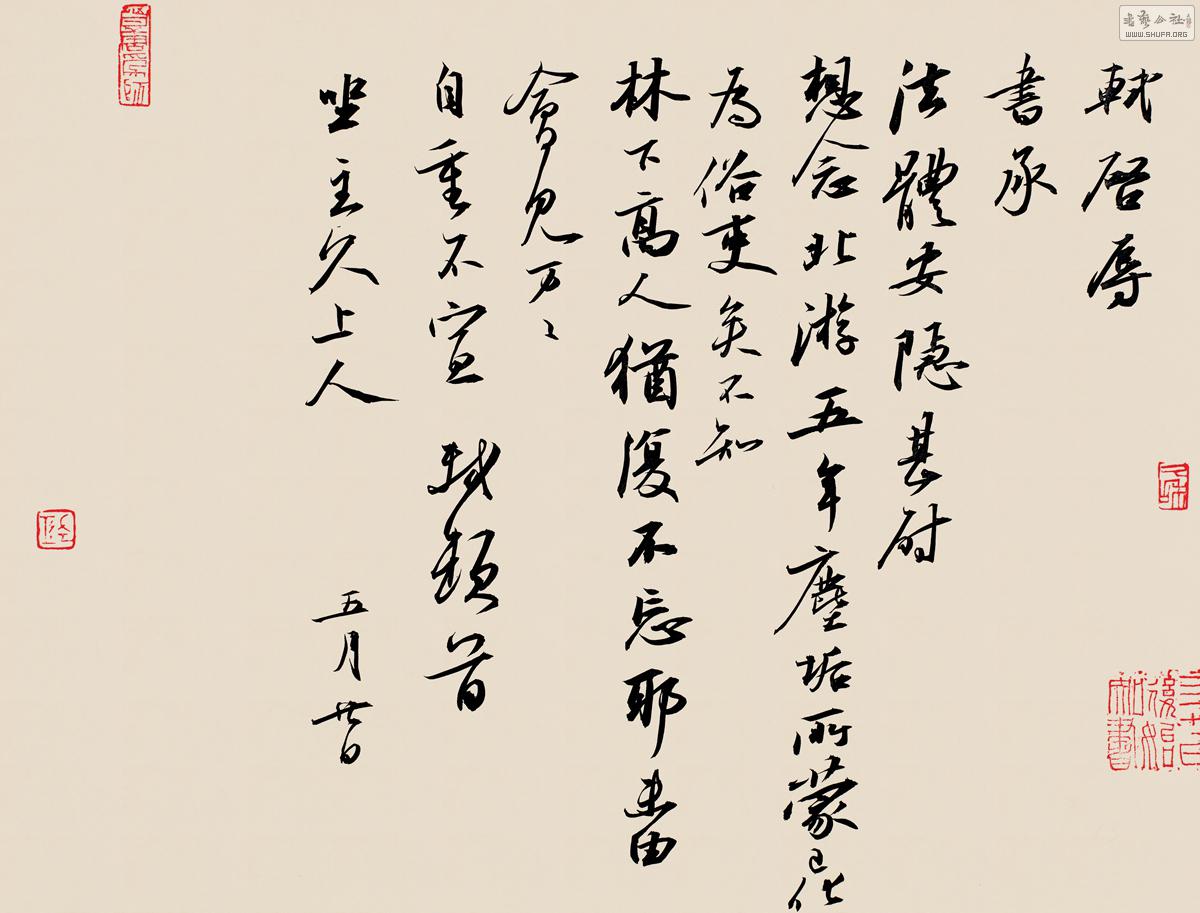 軾啓辱
書承
法體安隱甚尉
想念北游五年塵垢所蒙已化
為俗吏矣不知
林下高人猶復不忘耶未由
會見万〻
自重不宣　軾頓首
坐主久上人
五月廿日
書藝公社
WWW.SHUFA.ORG